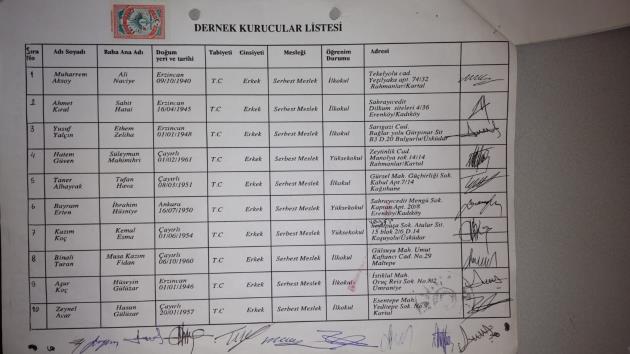 DERNEK KURUCULAR LİSTESİ
Sıra No | Adı Soyadı | Baba Ana Adı | Doğum yeri ve tarihi | Tabiyeti | Cinsiyeti | Mesleği | Öğrenim Durumu | Adresi
1 | Muharrem Aksoy | Ali Naciye | Erzincan 09/10/1940 | T.C | Erkek | Serbest Meslek | İlkokul | Tekelyolu cad. Yeşilyaka apt. 74/32 Rahmanlar/Kartal
2 | Ahmet Kıral | Sabit Hatai | Erzincan 16/04/1945 | T.C | Erkek | Serbest Meslek | İlkokul | Sahrayıcedit Dilkum siteleri 4/36 Erenköy/Kadıköy
3 | Yusuf Yalçın | Ethem Zeliha | Erzincan 01/01/1948 | T.C | Erkek | Serbest Meslek | İlkokul | Sarıgazi Cad. Bağlar yolu Gürpınar Sit B3 D.20 Bulgurlu/Üsküdar
4 | Hatem Güven | Süleyman Mahinihri | Çayırlı 01/02/1961 | T.C | Erkek | Serbest Meslek | Yüksekokul | Zeytinlik Cad. Manolya sok 14/14 Rahmanlar/Kartal
5 | Taner Albayrak | Tufan Hava | Çayırlı 08/03/1951 | T.C | Erkek | Serbest Meslek | İlkokul | Gürsel Mah. Güçbirliği Sok. Kabul Apt 7/14 Kağıthane
6 | Bayram Erten | İbrahim Hüsniye | Ankara 16/07/1950 | T.C | Erkek | Serbest Meslek | Yüksekokul | Sahrayıcedit Mengü Sok. Kaptan Apt. 20/8 Erenköy/Kadıköy
7 | Kazım Koç | Kemal Esma | Çayırlı 01/06/1954 | T.C | Erkek | Serbest Meslek | Yüksekokul | Sok. Atalar Sit. 15 blok 2/6 D.14 Koşuyolu/Üsküdar
8 | Binali Turan | Musa Kazım Fidan | Çayırlı 06/10/1960 | T.C | Erkek | Serbest Meslek | İlkokul | Gülsuyu Mah. Umut Kaftancı Cad. No.29 Maltepe
9 | Aşur Koç | Hüseyin Gülüzar | Erzincan 01/01/1946 | T.C | Erkek | Serbest Meslek | İlkokul | İstiklal Mah. Oruç Reis Sok. Umraniye
10 | Zeynel Acar | Hasan Gülüzar | Çayırlı 20/01/1957 | T.C | Erkek | Serbest Meslek | İlkokul | Esentepe Mah. Yeditepe Sok. Kartal